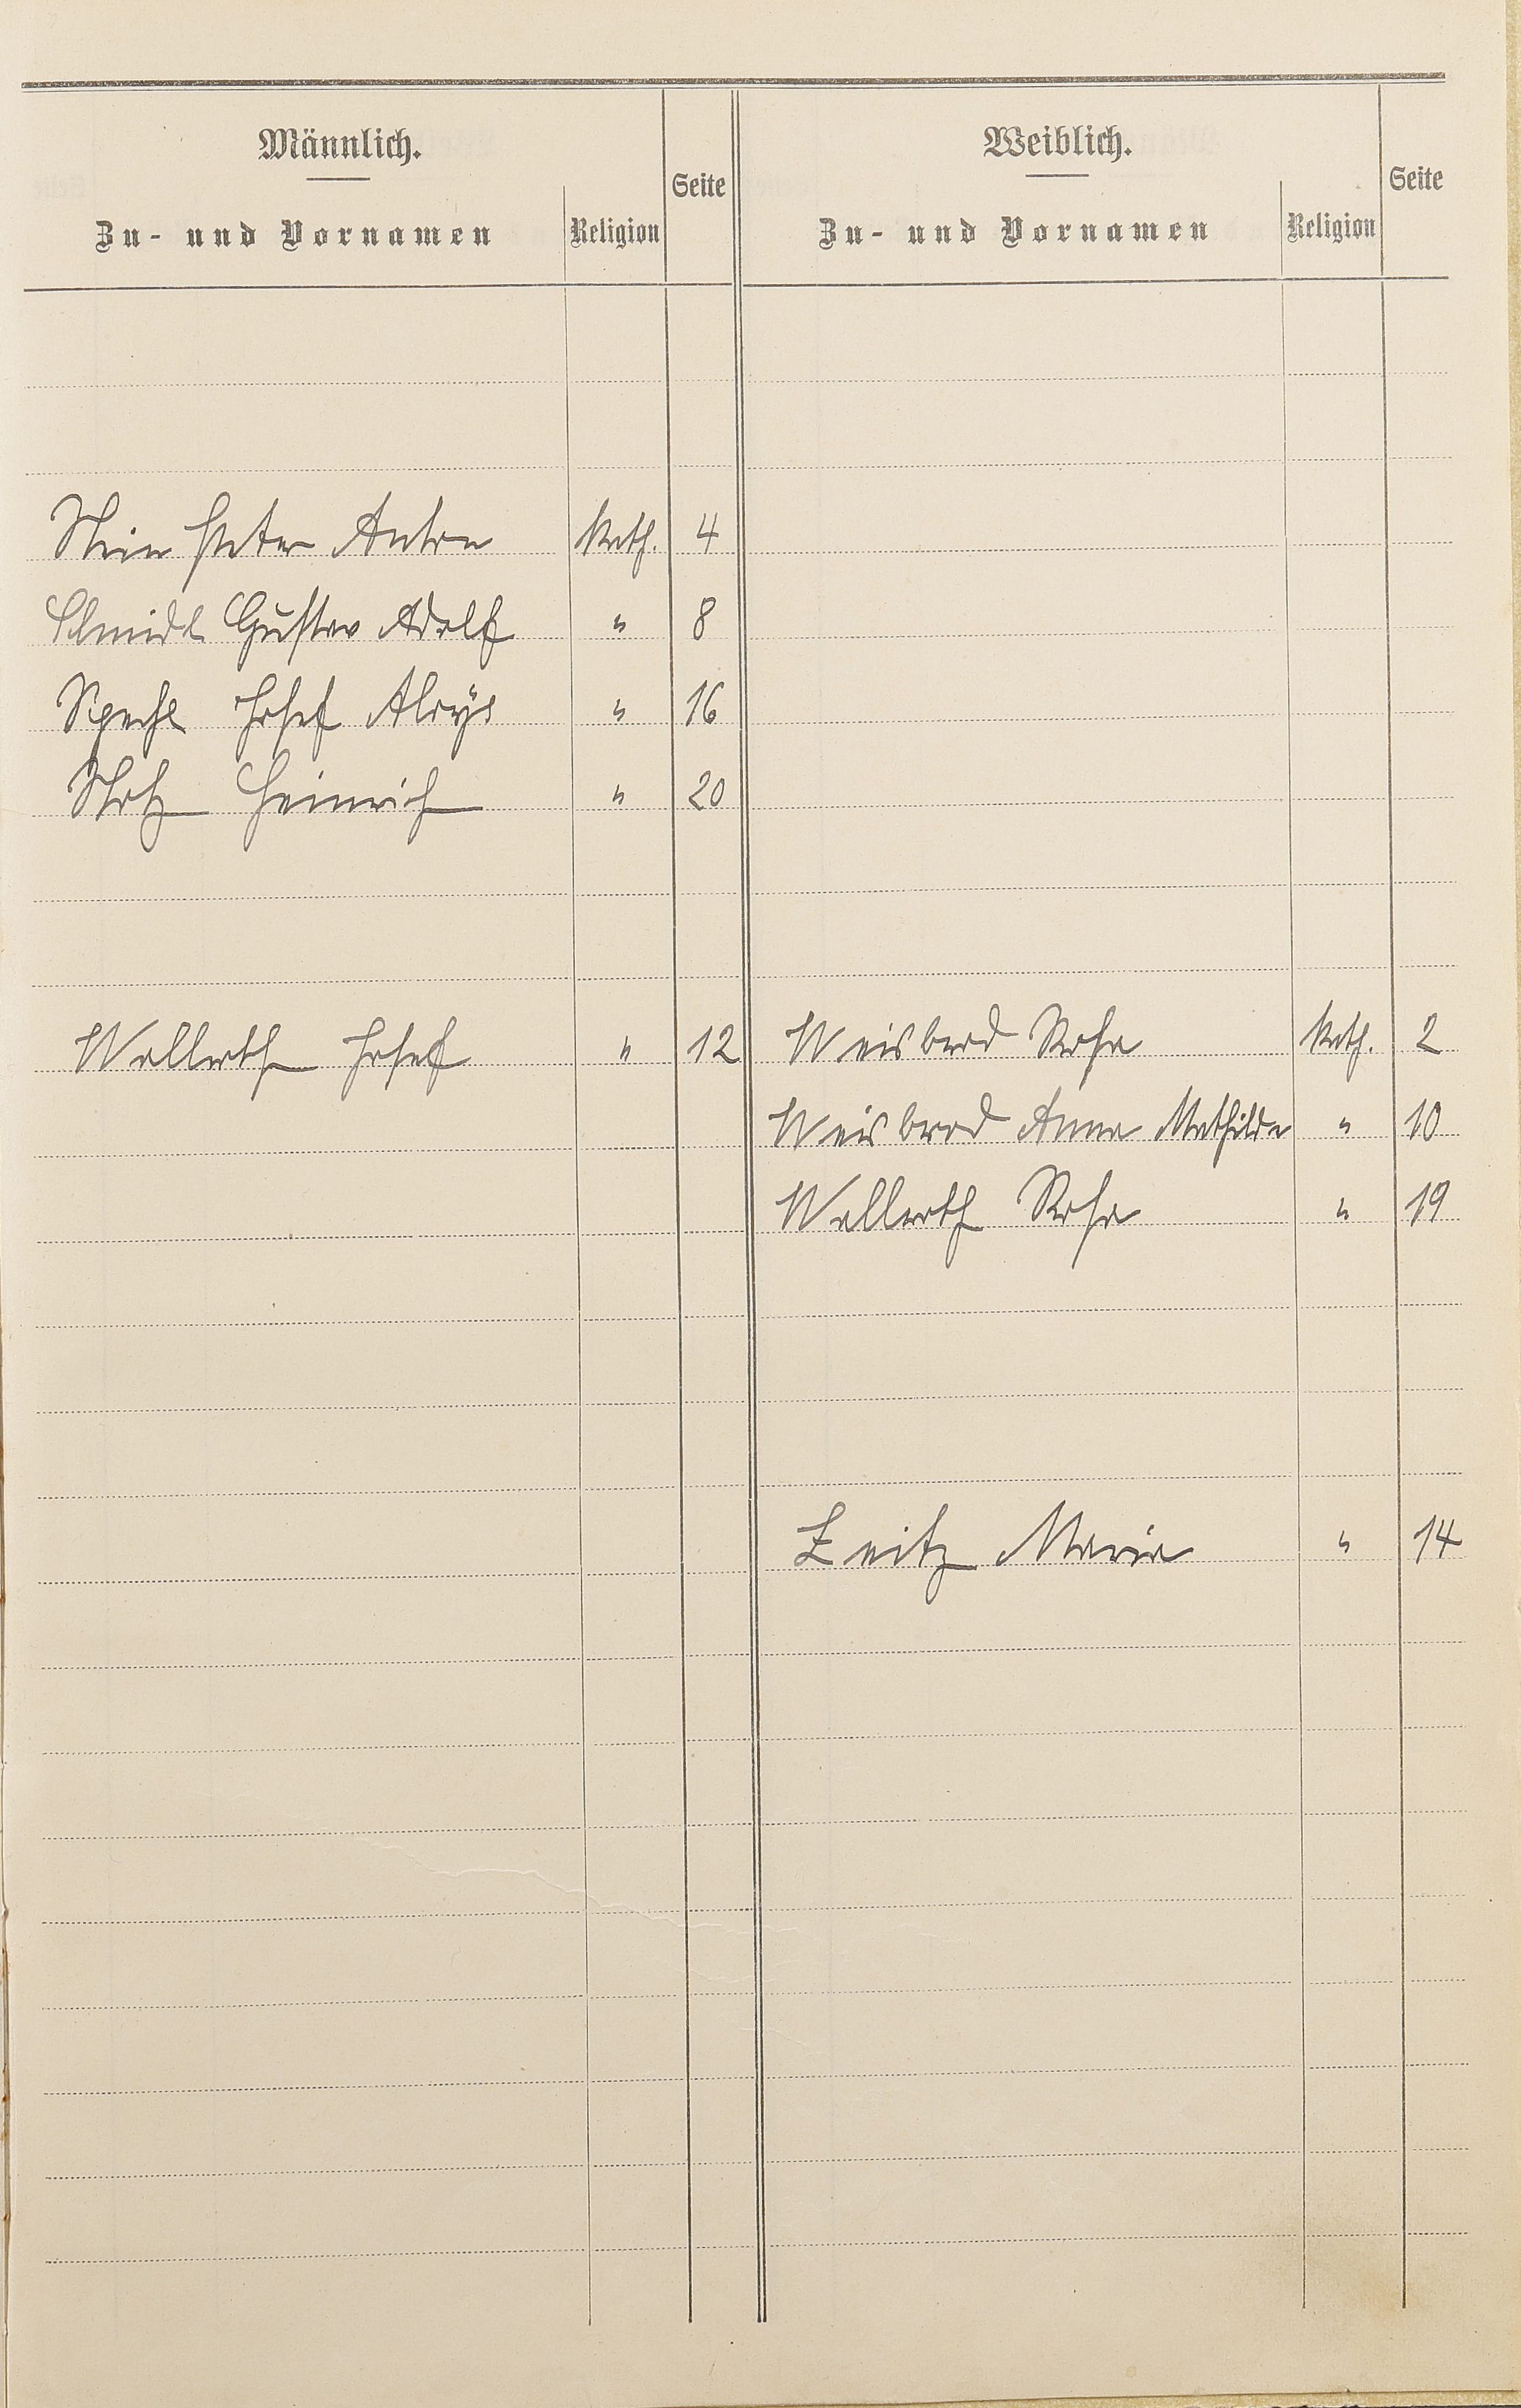 Männlich.
Zu- und Vornamen Religion Seite
Stein Peter Anton Kath. 4
Schmidt Gustav Adolf " 8
Specht Josef Aloys " 16
Stotz Heinrich " 20
Wallerth Josef " 12
Weiblich.
Zu- und Vornamen Religion Seite
Weisbrod Rosa Kath. 2
Weisbrod Anna Mathilde " 10
Wallerth Rosa " 19
Zeitz Maria " 14